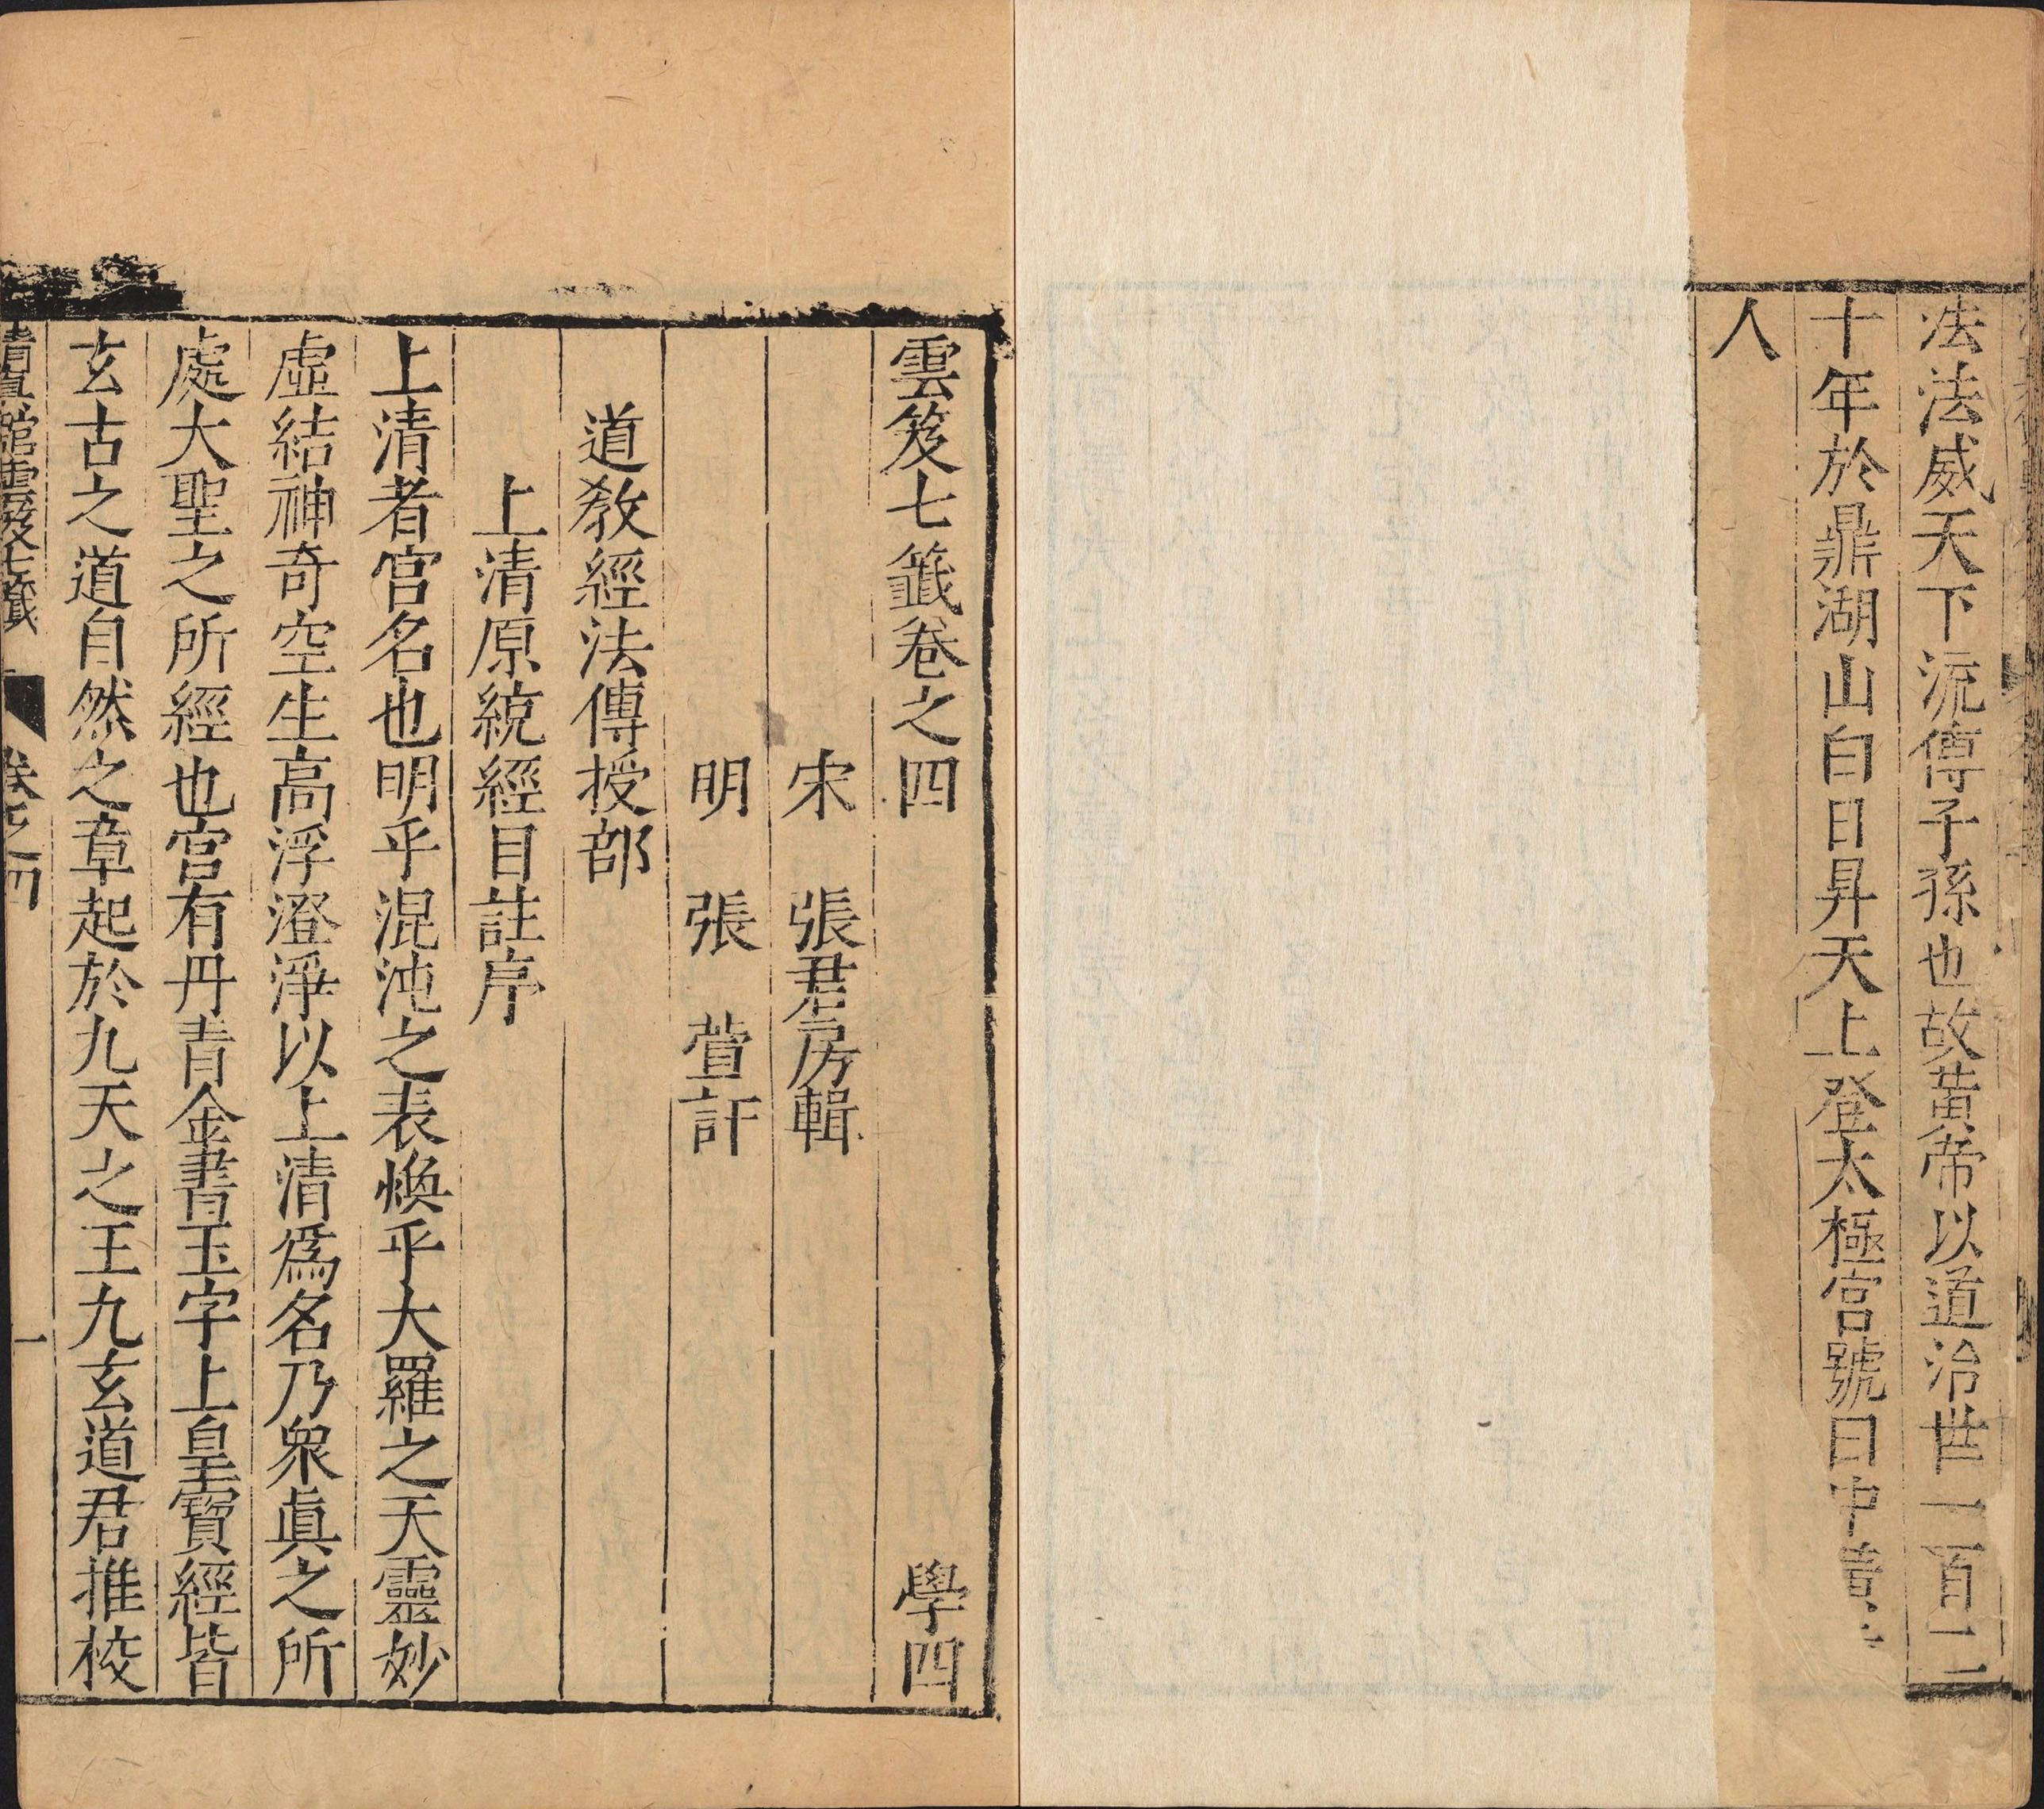 法法威天下流傳子孫也故黃帝以道治世一百二
十年於鼎湖山白日昇天上登太極宮號曰中黃
人
雲笈七籤卷之四 學四
宋 張君房輯
明 張 萱訂
道教經法傳授部
上清原統經目註序
上清者宮名也明乎混沌之表煥乎大羅之天靈妙
虛結神奇空生高浮澄淨以上清爲名乃衆眞之所
處大聖之所經也宮有丹青金書玉字上皇寶經皆
玄古之道自然之章起於九天之王九玄道君推校
清眞館雲笈七籤 卷之四 一